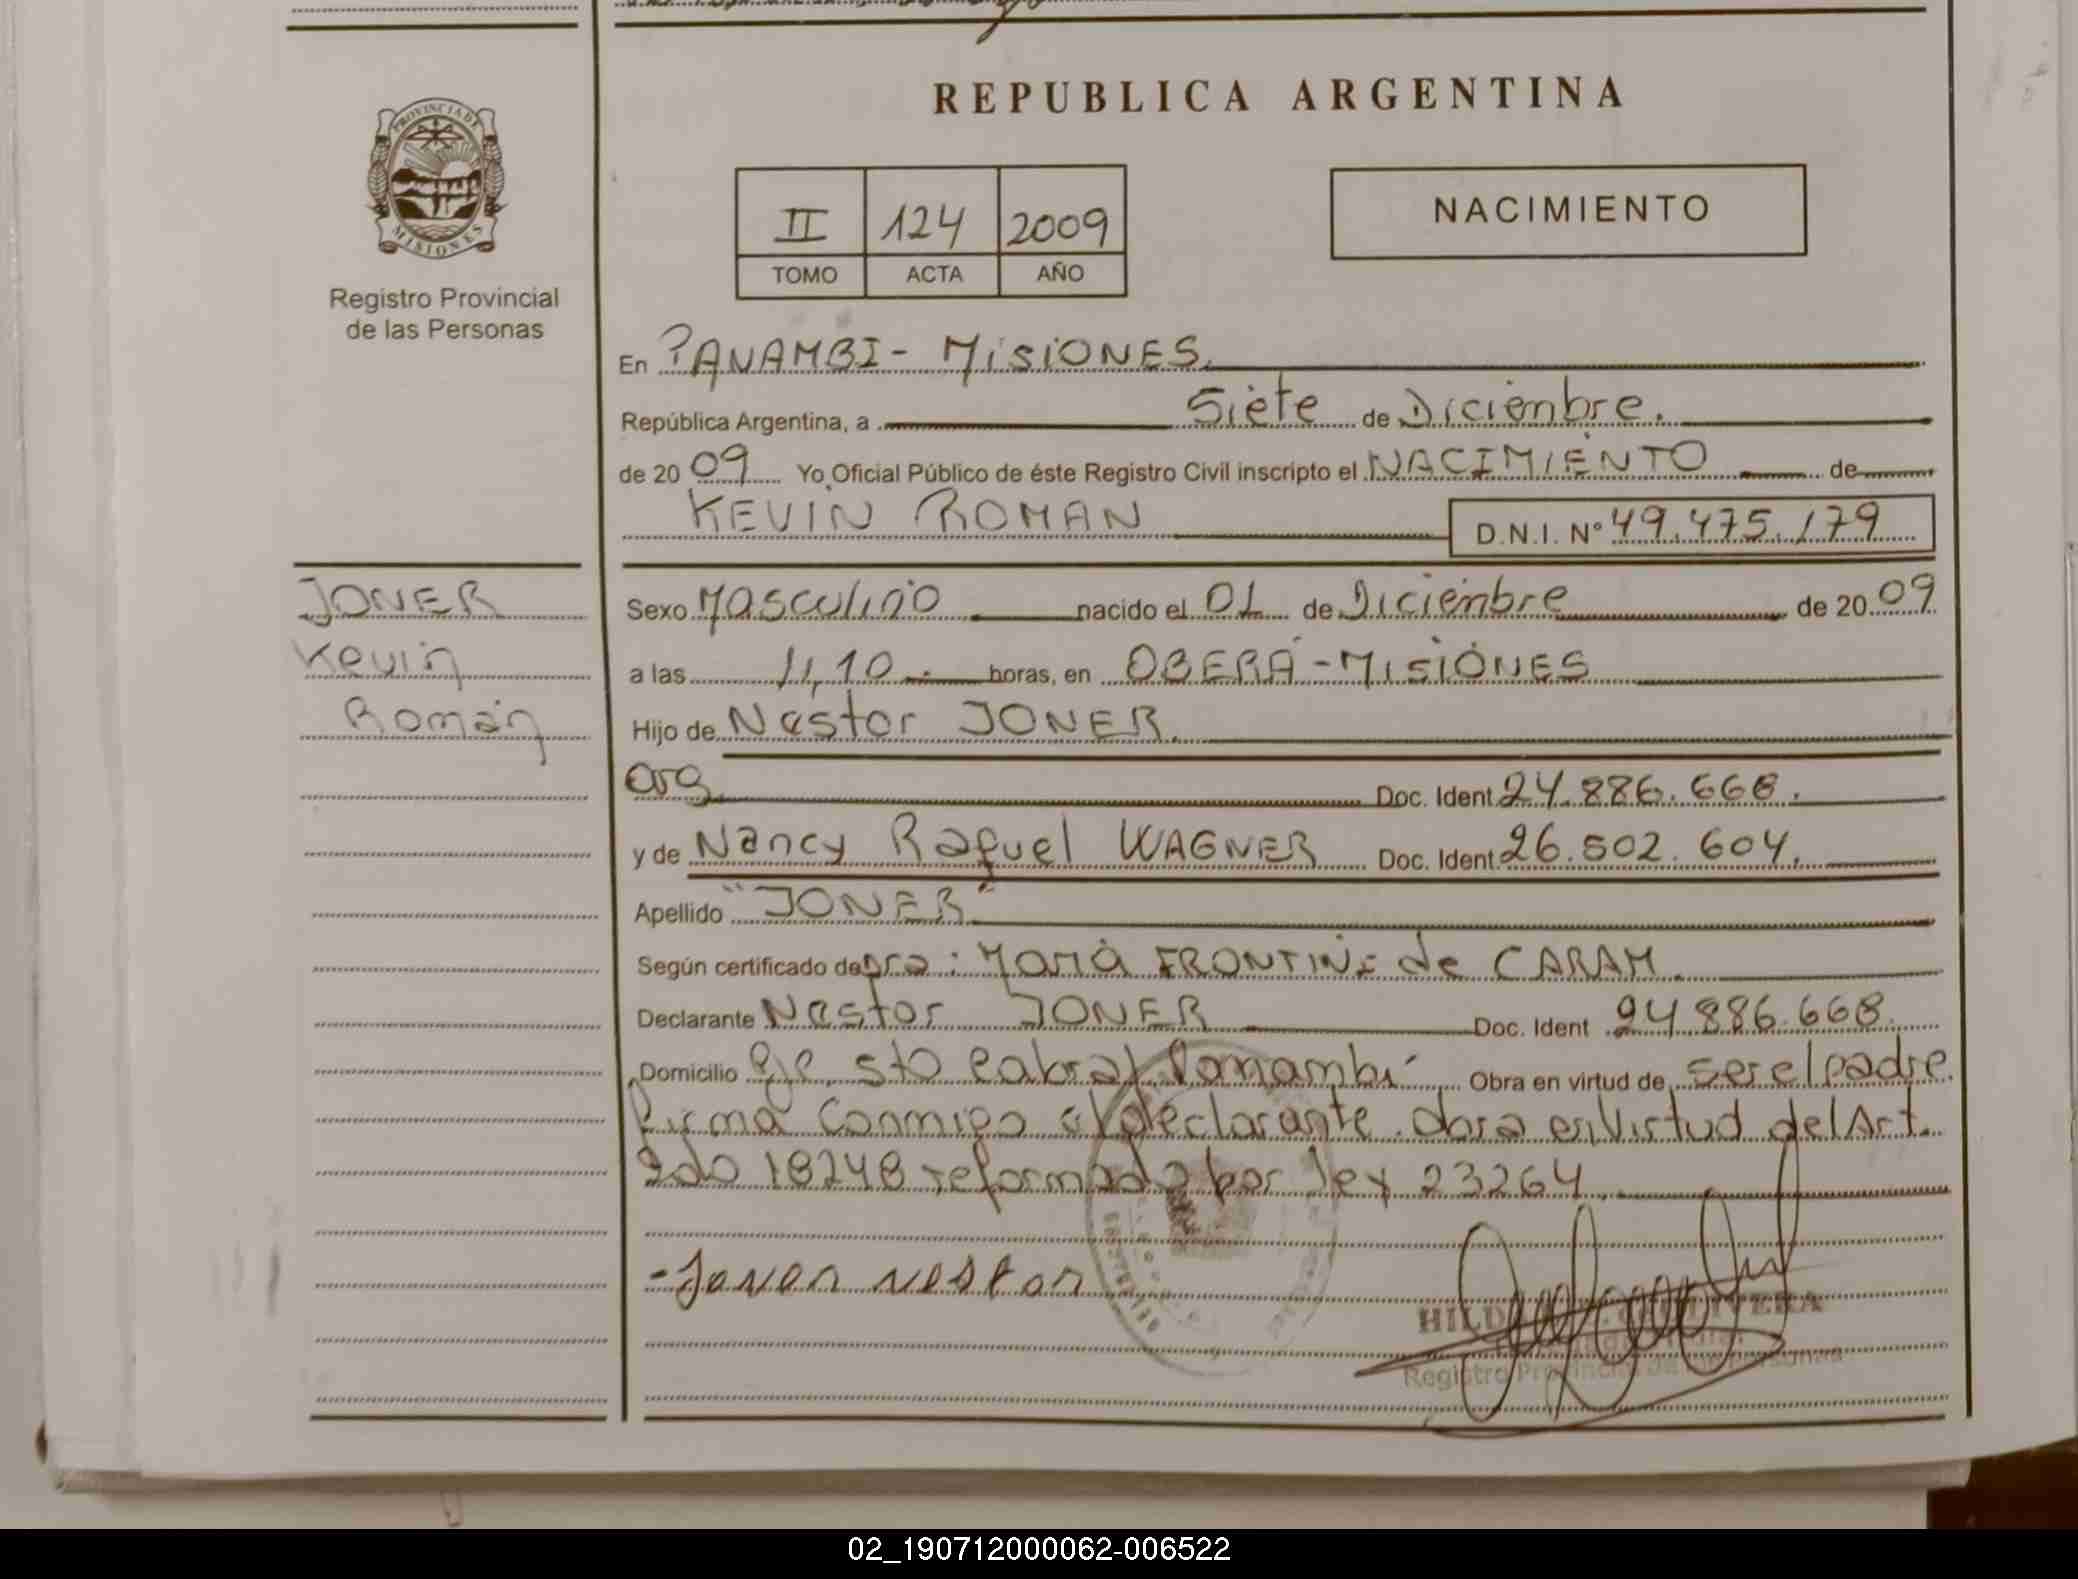 REPUBLICA ARGENTINA
PROVINCIA DE
MISIONES
Registro Provincial
de las Personas
II 124 2009
TOMO ACTA AÑO
NACIMIENTO
En PANAMBI - MISIONES.
República Argentina, a Siete de Diciembre.
de 2009 Yo Oficial Público de éste Registro Civil inscripto el NACIMIENTO de
KEVIN ROMAN D.N.I. Nº 49.475.179
JONER
Kevin
Román
Sexo Masculino nacido el 01 de Diciembre de 2009
a las 11,10 horas, en OBERÁ - MISIONES
Hijo de Nestor JONER.
arg Doc. Ident 24.886.668.
y de Nancy Raquel WAGNER Doc. Ident. 26.502.604.
Apellido "JONER"
Según certificado de Dra: María FRONTINE de CARAM.
Declarante Nestor JONER Doc. Ident 24.886.668.
Domicilio Sto Cabral Panambí Obra en virtud de ser el padre.
firma conmigo el declarante. obra en virtud del Art.
2do 18248 reformado por ley 23264.
- Joner nestor
HILDA OLIVERA
Registro Provincial de las Personas
02_190712000062-006522